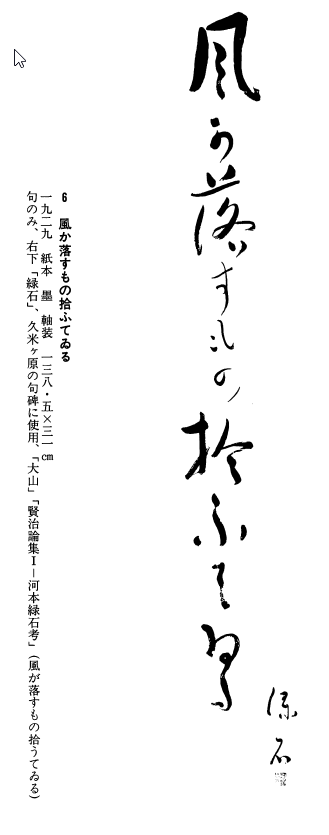 風か落すもの拾ふてゐる
緑石
6 風か落すもの拾ふてゐる
一九二九 紙本 墨 軸装 一三八・五×三一㎝
句のみ、右下「緑石」、久米ヶ原の句碑に使用、「大山」「賢治論集Ⅰ―河本緑石考」(風が落すもの拾うてゐる)